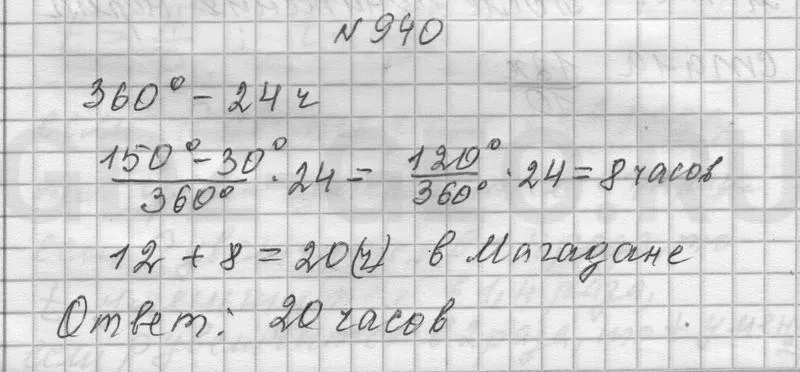 N 940
360° - 24 ч
150° - 30° / 360° · 24 = 120° / 360° · 24 = 8 часов
12 + 8 = 20(ч) в Магадане
Ответ: 20 часов